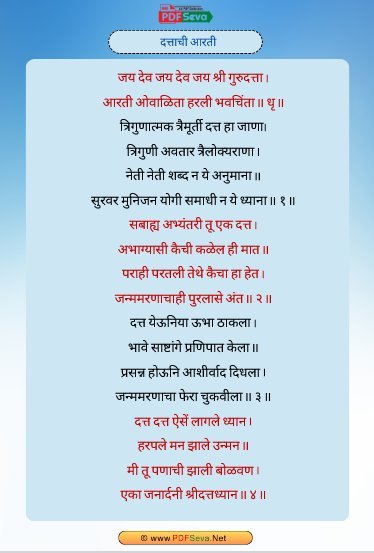 PDFSeva
दत्ताची आरती
जय देव जय देव जय श्री गुरुदत्ता ।
आरती ओवाळिता हरली भवचिंता ॥ धृ ॥
त्रिगुणात्मक त्रैमूर्ती दत्त हा जाणा।
त्रिगुणी अवतार त्रैलोक्यराणा ।
नेती नेती शब्द न ये अनुमाना ॥
सुरवर मुनिजन योगी समाधी न ये ध्याना ॥ १ ॥
सबाह्य अभ्यंतरी तू एक दत्त ।
अभाग्यासी कैची कळेल ही मात ॥
पराही परतली तेथे कैचा हा हेत ।
जन्ममरणाचाही पुरलासे अंत ॥ २ ॥
दत्त येऊनिया ऊभा ठाकला ।
भावे साष्टांगे प्रणिपात केला ॥
प्रसन्न होऊनि आशीर्वाद दिधला ।
जन्ममरणाचा फेरा चुकवीला ॥ ३ ॥
दत्त दत्त ऐसें लागले ध्यान ।
हरपले मन झाले उन्मन ॥
मी तू पणाची झाली बोळवण ।
एका जनार्दनी श्रीदत्तध्यान ॥ ४ ॥
© www.PDFSeva.Net